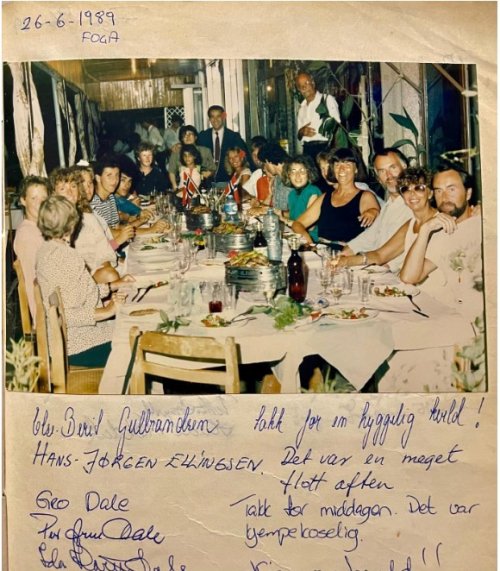 26-6-1989
FOGA
Else-Berit Gulbrandsen takk for en hyggelig kveld!
HANS-JØRGEN ELLINGSEN. Det var en meget
flott aften
Gro Dale Takk for middagen. Det var
Dale kjempekoselig.